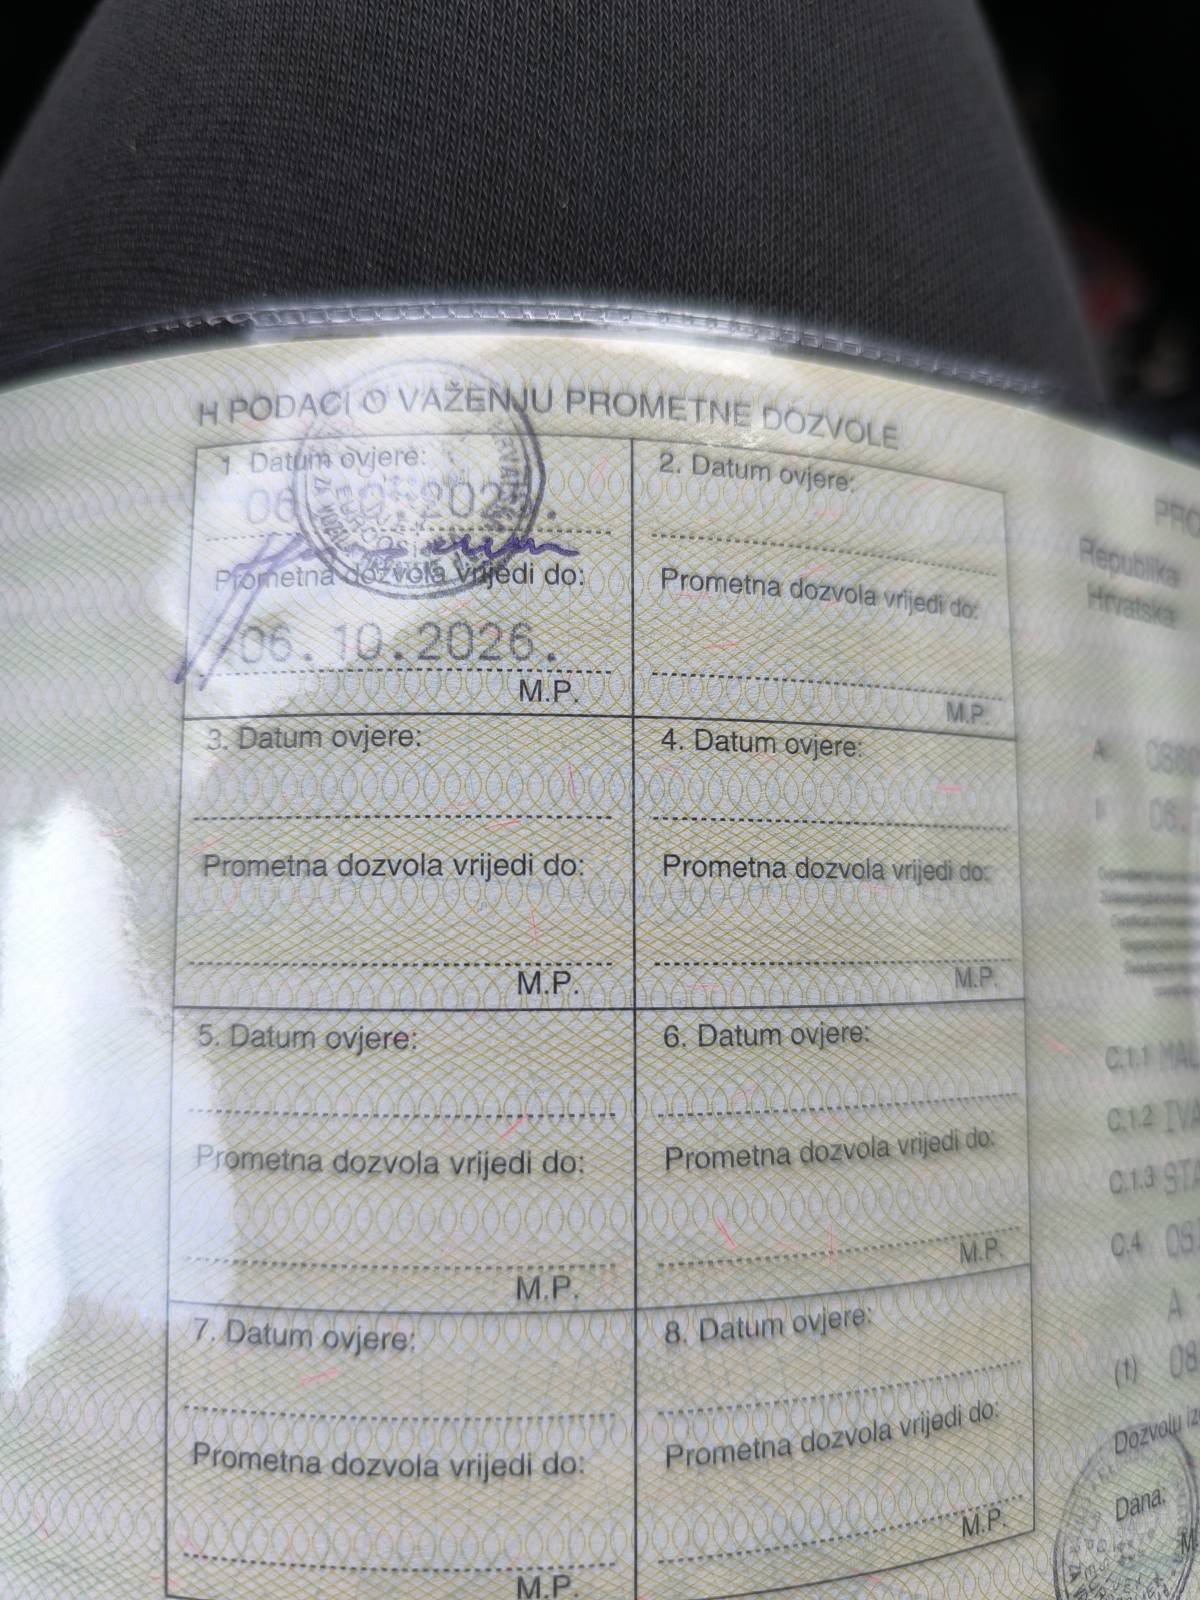 H PODACI O VAŽENJU PROMETNE DOZVOLE
1. Datum ovjere:
Prometna dozvola vrijedi do:
06.10.2026.
M.P.
2. Datum ovjere:
Prometna dozvola vrijedi do:
M.P.
3. Datum ovjere:
Prometna dozvola vrijedi do:
M.P.
4. Datum ovjere:
Prometna dozvola vrijedi do:
M.P.
5. Datum ovjere:
Prometna dozvola vrijedi do:
M.P.
6. Datum ovjere:
Prometna dozvola vrijedi do:
M.P.
7. Datum ovjere:
Prometna dozvola vrijedi do:
M.P.
8. Datum ovjere:
Prometna dozvola vrijedi do:
M.P.
Republika
Hrvatska
A
06.
C.1.1
C.1.2
C.1.3
C.4
A
(1) 08
Dozvolu
Dana: